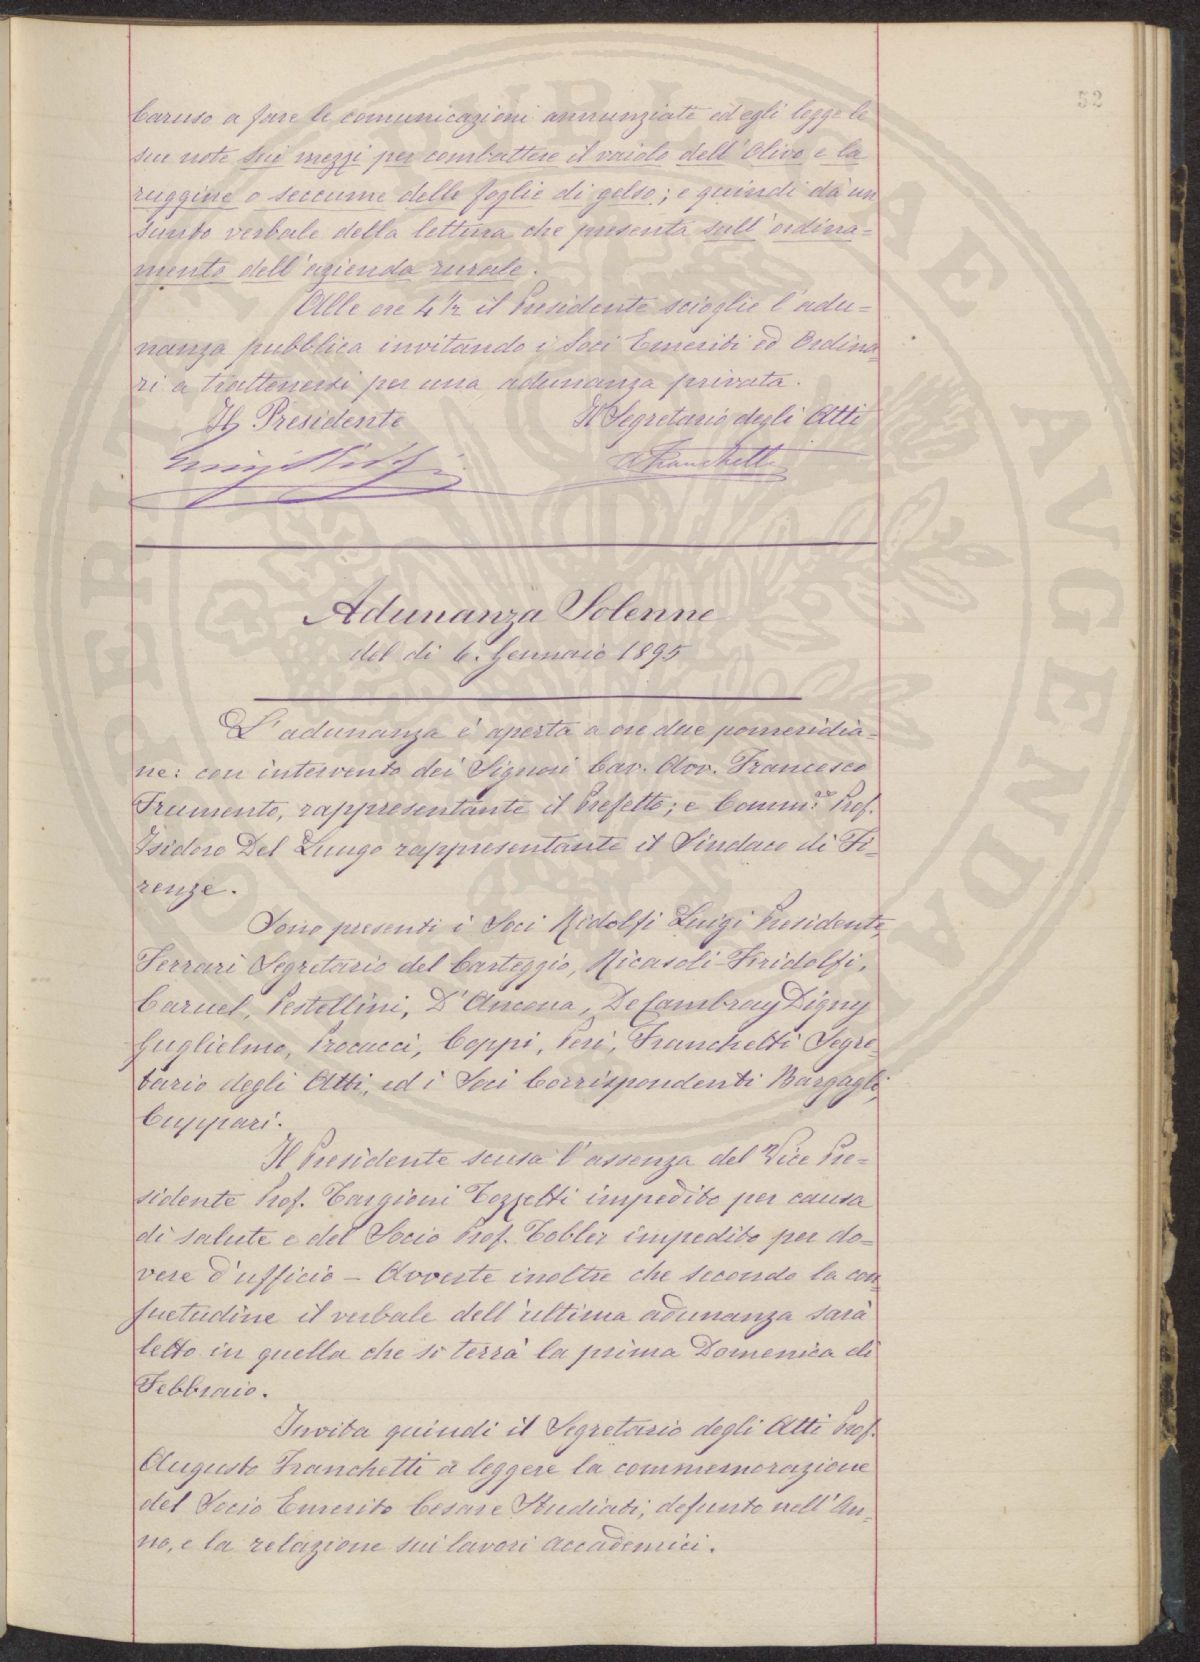 52
Caruso a fare le comunicazioni annunziate ed egli legge le
sue note sui mezzi per combattere il vaiolo dell'Olivo e la
ruggine o seccume delle foglie di gelso; e quindi dà un
sunto verbale della lettura che presenta sull'ordina=
mento dell'azienda rurale.
Alle ore 4 1/2 il Presidente scioglie l'adu=
nanza pubblica invitando i Soci Emeriti ed Ordina=
ri a trattenersi per una adunanza privata.
Il Presidente Il Segretario degli Atti
Luigi Ridolfi A Franchetti
Adunanza Solenne
del di 6. Gennaio 1895
L'adunanza è aperta a ore due pomeridia=
ne: con intervento dei Signori Cav. Avv. Francesco
Frumento, rappresentante il Prefetto; e Comm.re Prof.
Isidoro Del Lungo rappresentante il Sindaco di Fi=
renze.
Sono presenti i Soci Ridolfi Luigi Presidente,
Ferrari Segretario del Carteggio, Ricasoli-Firidolfi,
Caruel, Pestellini, D'Ancona, De Cambray Digny
Guglielmo, Procacci, Coppi, Peri, Franchetti Segre=
tario degli Atti, ed i Soci Corrispondenti Bargagli,
Cuppari.
Il Presidente scusa l'assenza del Vice Pre=
sidente Prof. Targioni Tozzetti impedito per causa
di salute e del Socio Prof. Tobler impedito per do=
vere d'ufficio – Avverte inoltre che secondo la con=
suetudine il verbale dell'ultima adunanza sarà
letto in quella che si terrà la prima Domenica di
Febbraio.
Invita quindi il Segretario degli Atti Prof.
Augusto Franchetti a leggere la commemorazione
del Socio Emerito Cesare Studiati, defunto nell'An=
no, e la relazione sui lavori accademici.